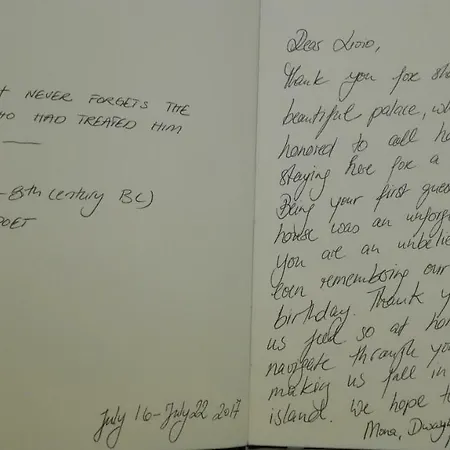 NEVER FORGETS THE
HAD TREATED HIM
8th century BC)
POET
July 16-July 22 2017
Dear
Thank you for
beautiful palace,
honored to call
staying here for a
Being your first
house was an
you are an
even remembering our
birthday. Thank
us feel so at
navigate through
making us fall in
island. We hope
Mona,